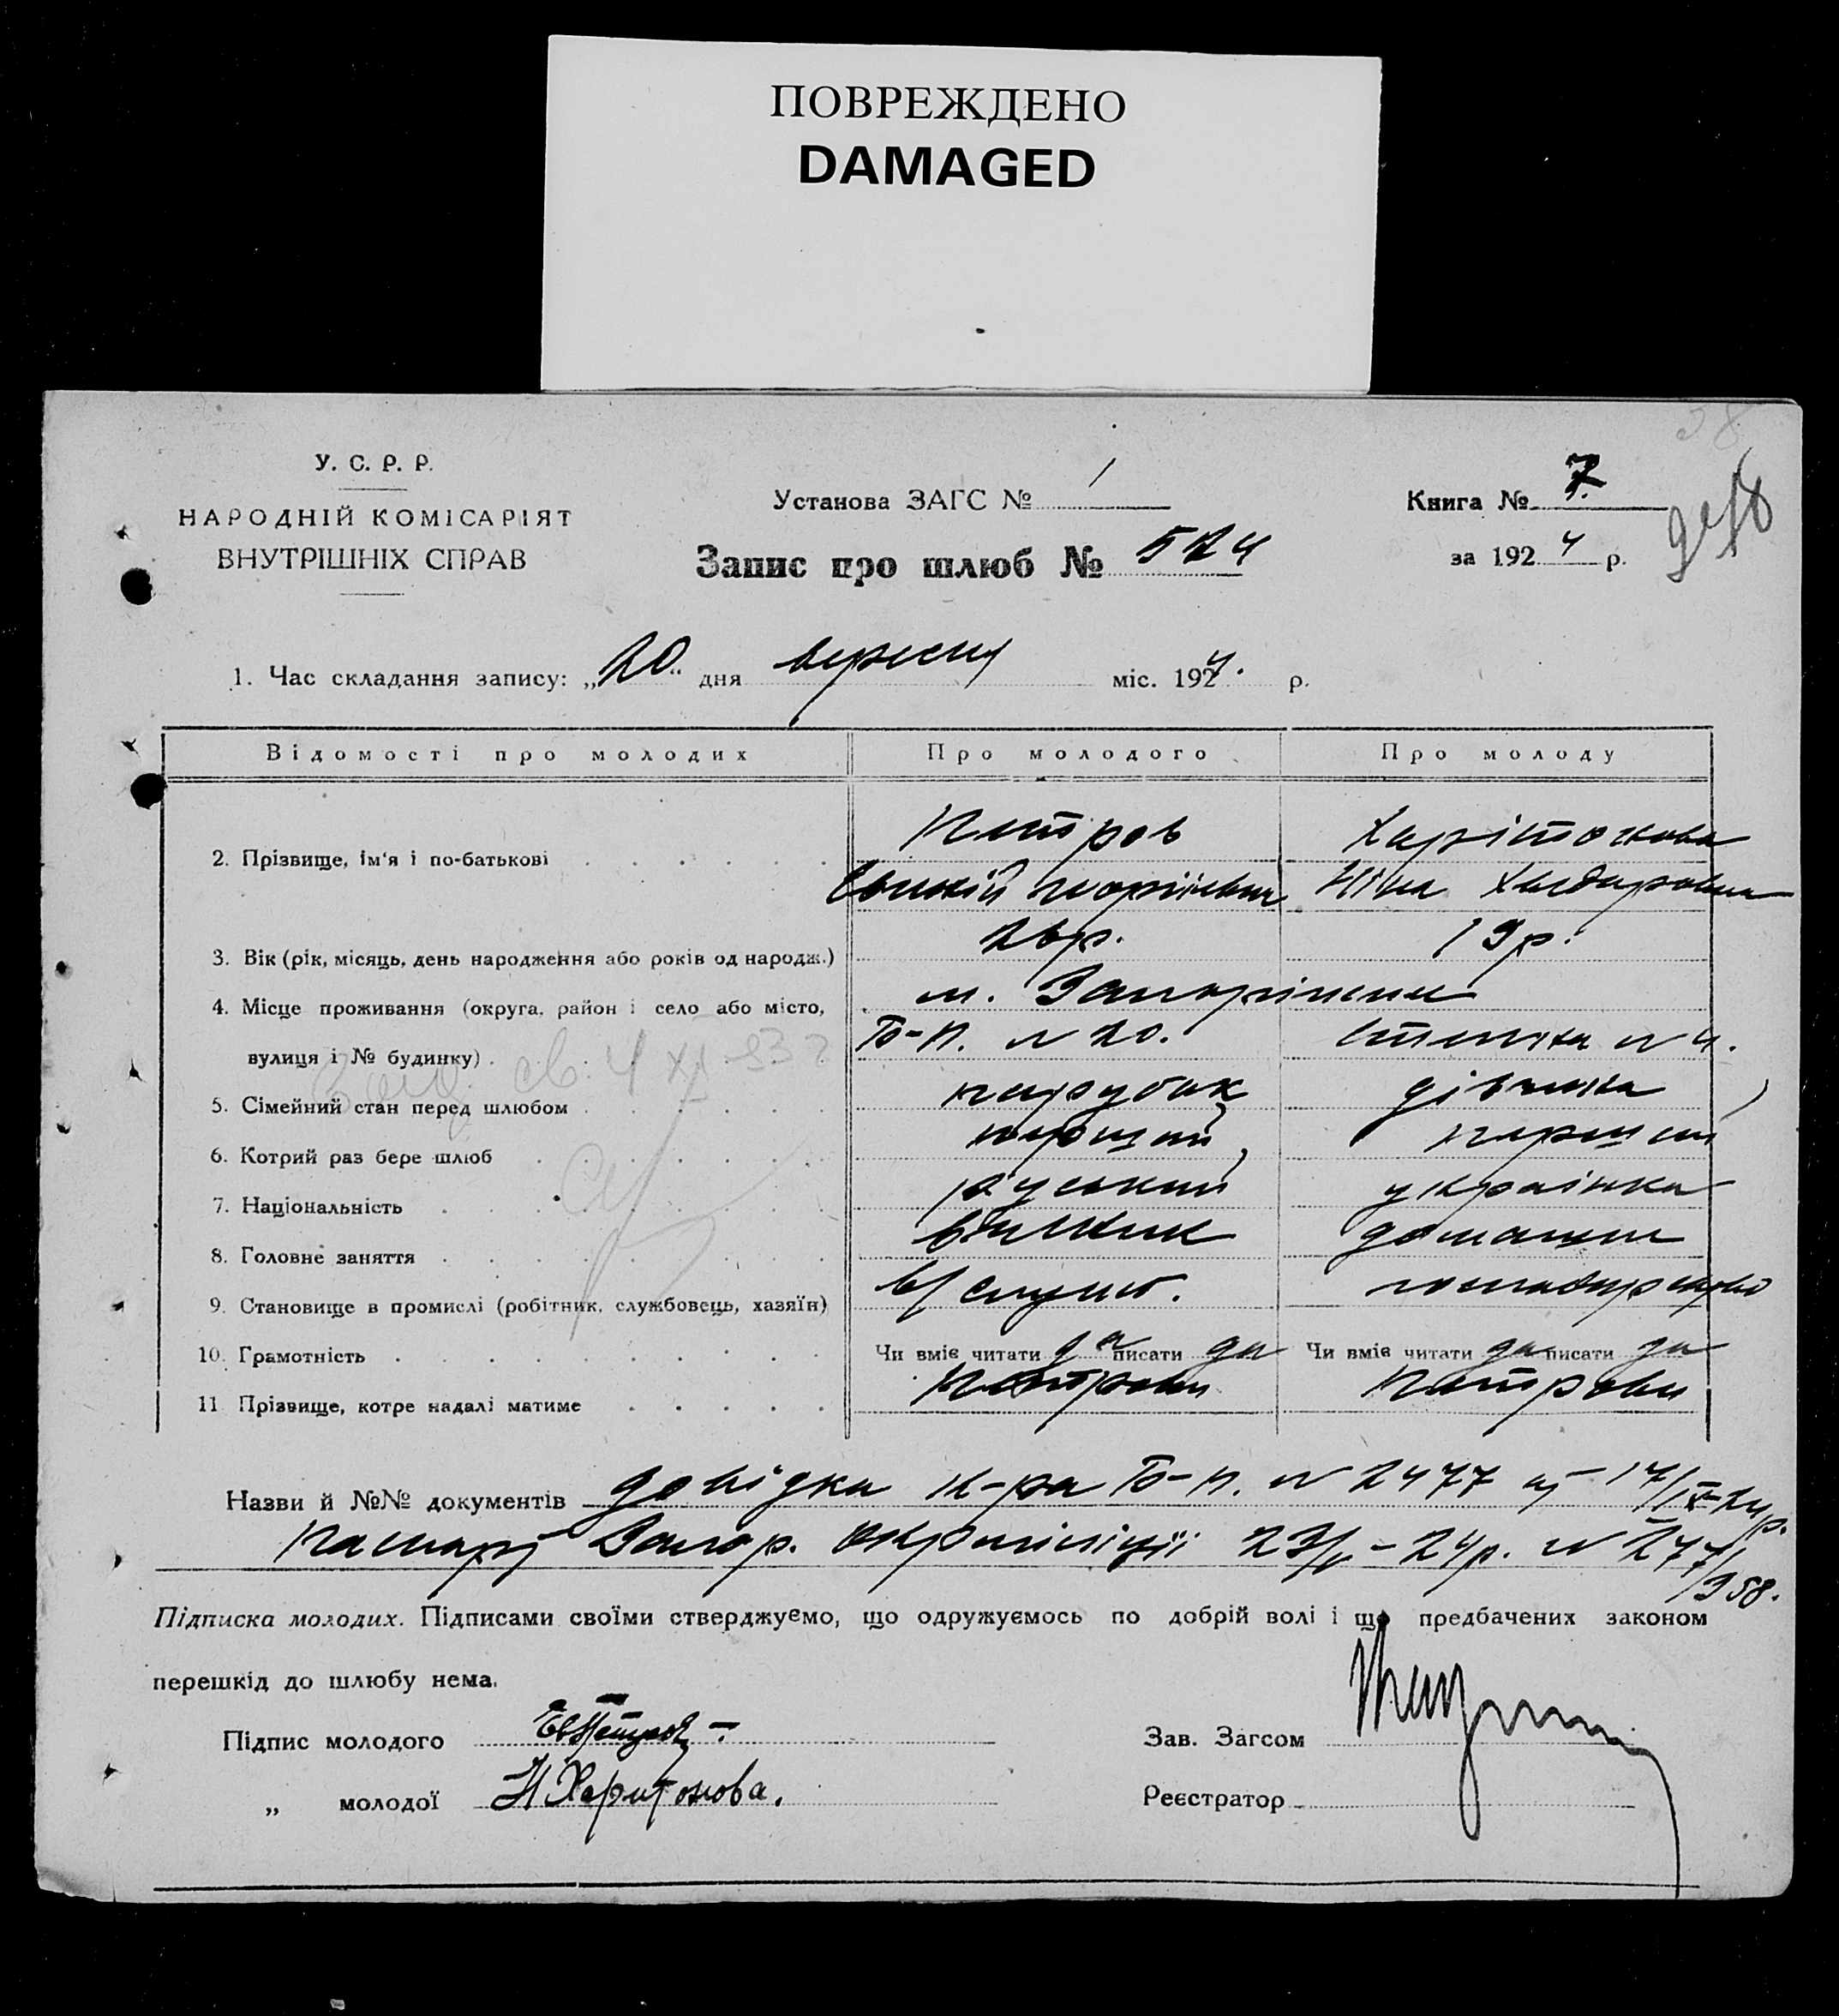 ПОВРЕЖДЕНО
DAMAGED
У. С. Р. Р.
НАРОДНІЙ КОМІСАРІЯТ
ВНУТРІШНІХ СПРАВ
Установа ЗАГС № 1
Запис про шлюб № 524
Книга № 7
за 1924 р.
1. Час складання запису: „20" дня вересня міс. 1924. р.
Відомості про молодих
Про молодого
Про молоду
2. Прізвище, ім'я і по-батькові
Петров
Харітонова
Ніна
3. Вік (рік, місяць, день народження або років од народж.)
26р.
19р.
4. Місце проживання (округа, район і село або місто,
м. Запоріжжя
вулиця і № будинку)
Б-П. № 20.
№ 4.
5. Сімейний стан перед шлюбом
парубок
дівчина
6. Котрий раз бере шлюб
перший
перший
7. Національність
руський
українка
8. Головне заняття
домашнє
9. Становище в промислі (робітник, службовець, хазяїн)
10. Грамотність
Чи вміє читати да писати да
Чи вміє читати да писати да
11 Прізвище, котре надалі матиме
Петрови
Петрови
Назви й №№ документів довідка к-ра Б-П. № 2477 17/IX-24р.
Паспорт Запор. Окрміліції 24р. № 277/958.
Підписка молодих. Підписами своїми стверджуємо, що одружуємось по добрій волі і що предбачених законом
перешкід до шлюбу нема.
Підпис молодого ЕвПетров
Зав. Загсом
„ молодої Н Харитонова.
Реєстратор